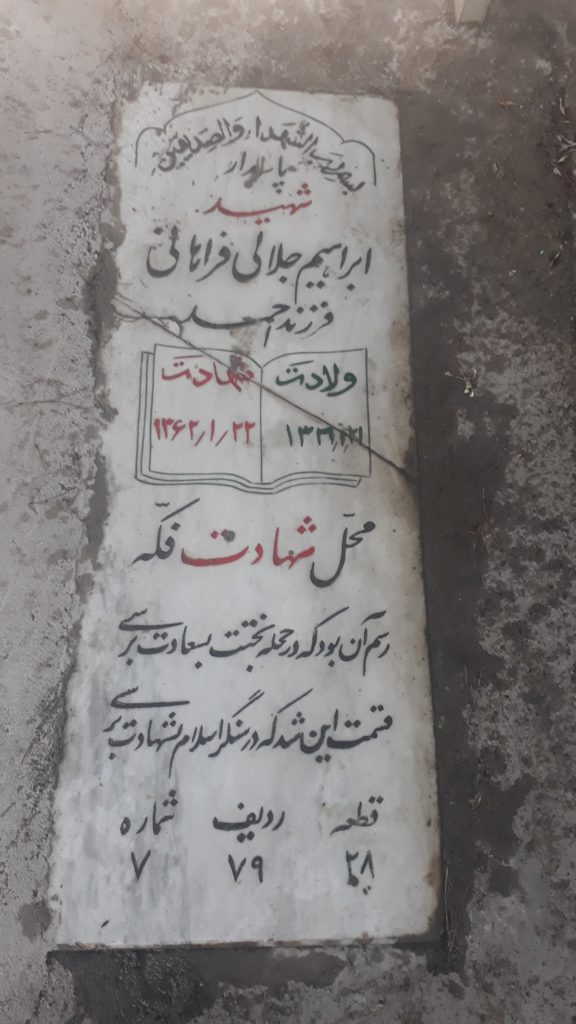 بسم رب الشهداء والصدیقین
پاسدار
شهید
ابراهیم جلالی فراهانی
فرزند احمد
ولادت شهادت
۱۳۶۲/۱/۲۲
محل شهادت فکّه
رسم آن بود که در حجله بختت بسعادت برسی
قسمت این شد که در سنگر اسلام بشهادت برسی
قطعه ردیف شماره
۲۸ ۷۹ ۷